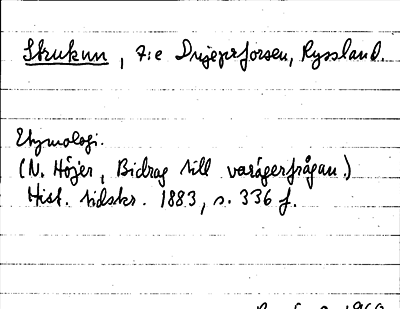 Strukun, 7:e Dnjeprforsen, Ryssland.
Etymologi.
(N. Höjer, Bidrag till varägerfrågan.)
Hist. tidskr. 1883, s. 336 f.
1960